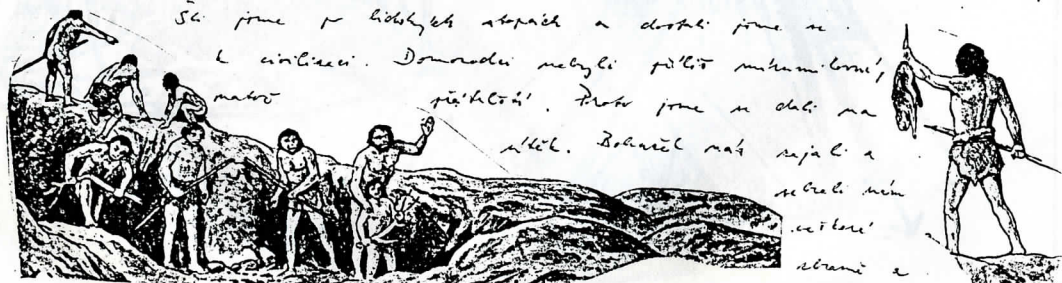 Šli jsme po lidských stopách a dostali jsme se
k civilizaci. Domorodci nebyli příliš mírumilovní,
natož přátelští. Proto jsme se dali na
útěk. Bohužel nás zajali a
sebrali nám
veškeré
zbraně a